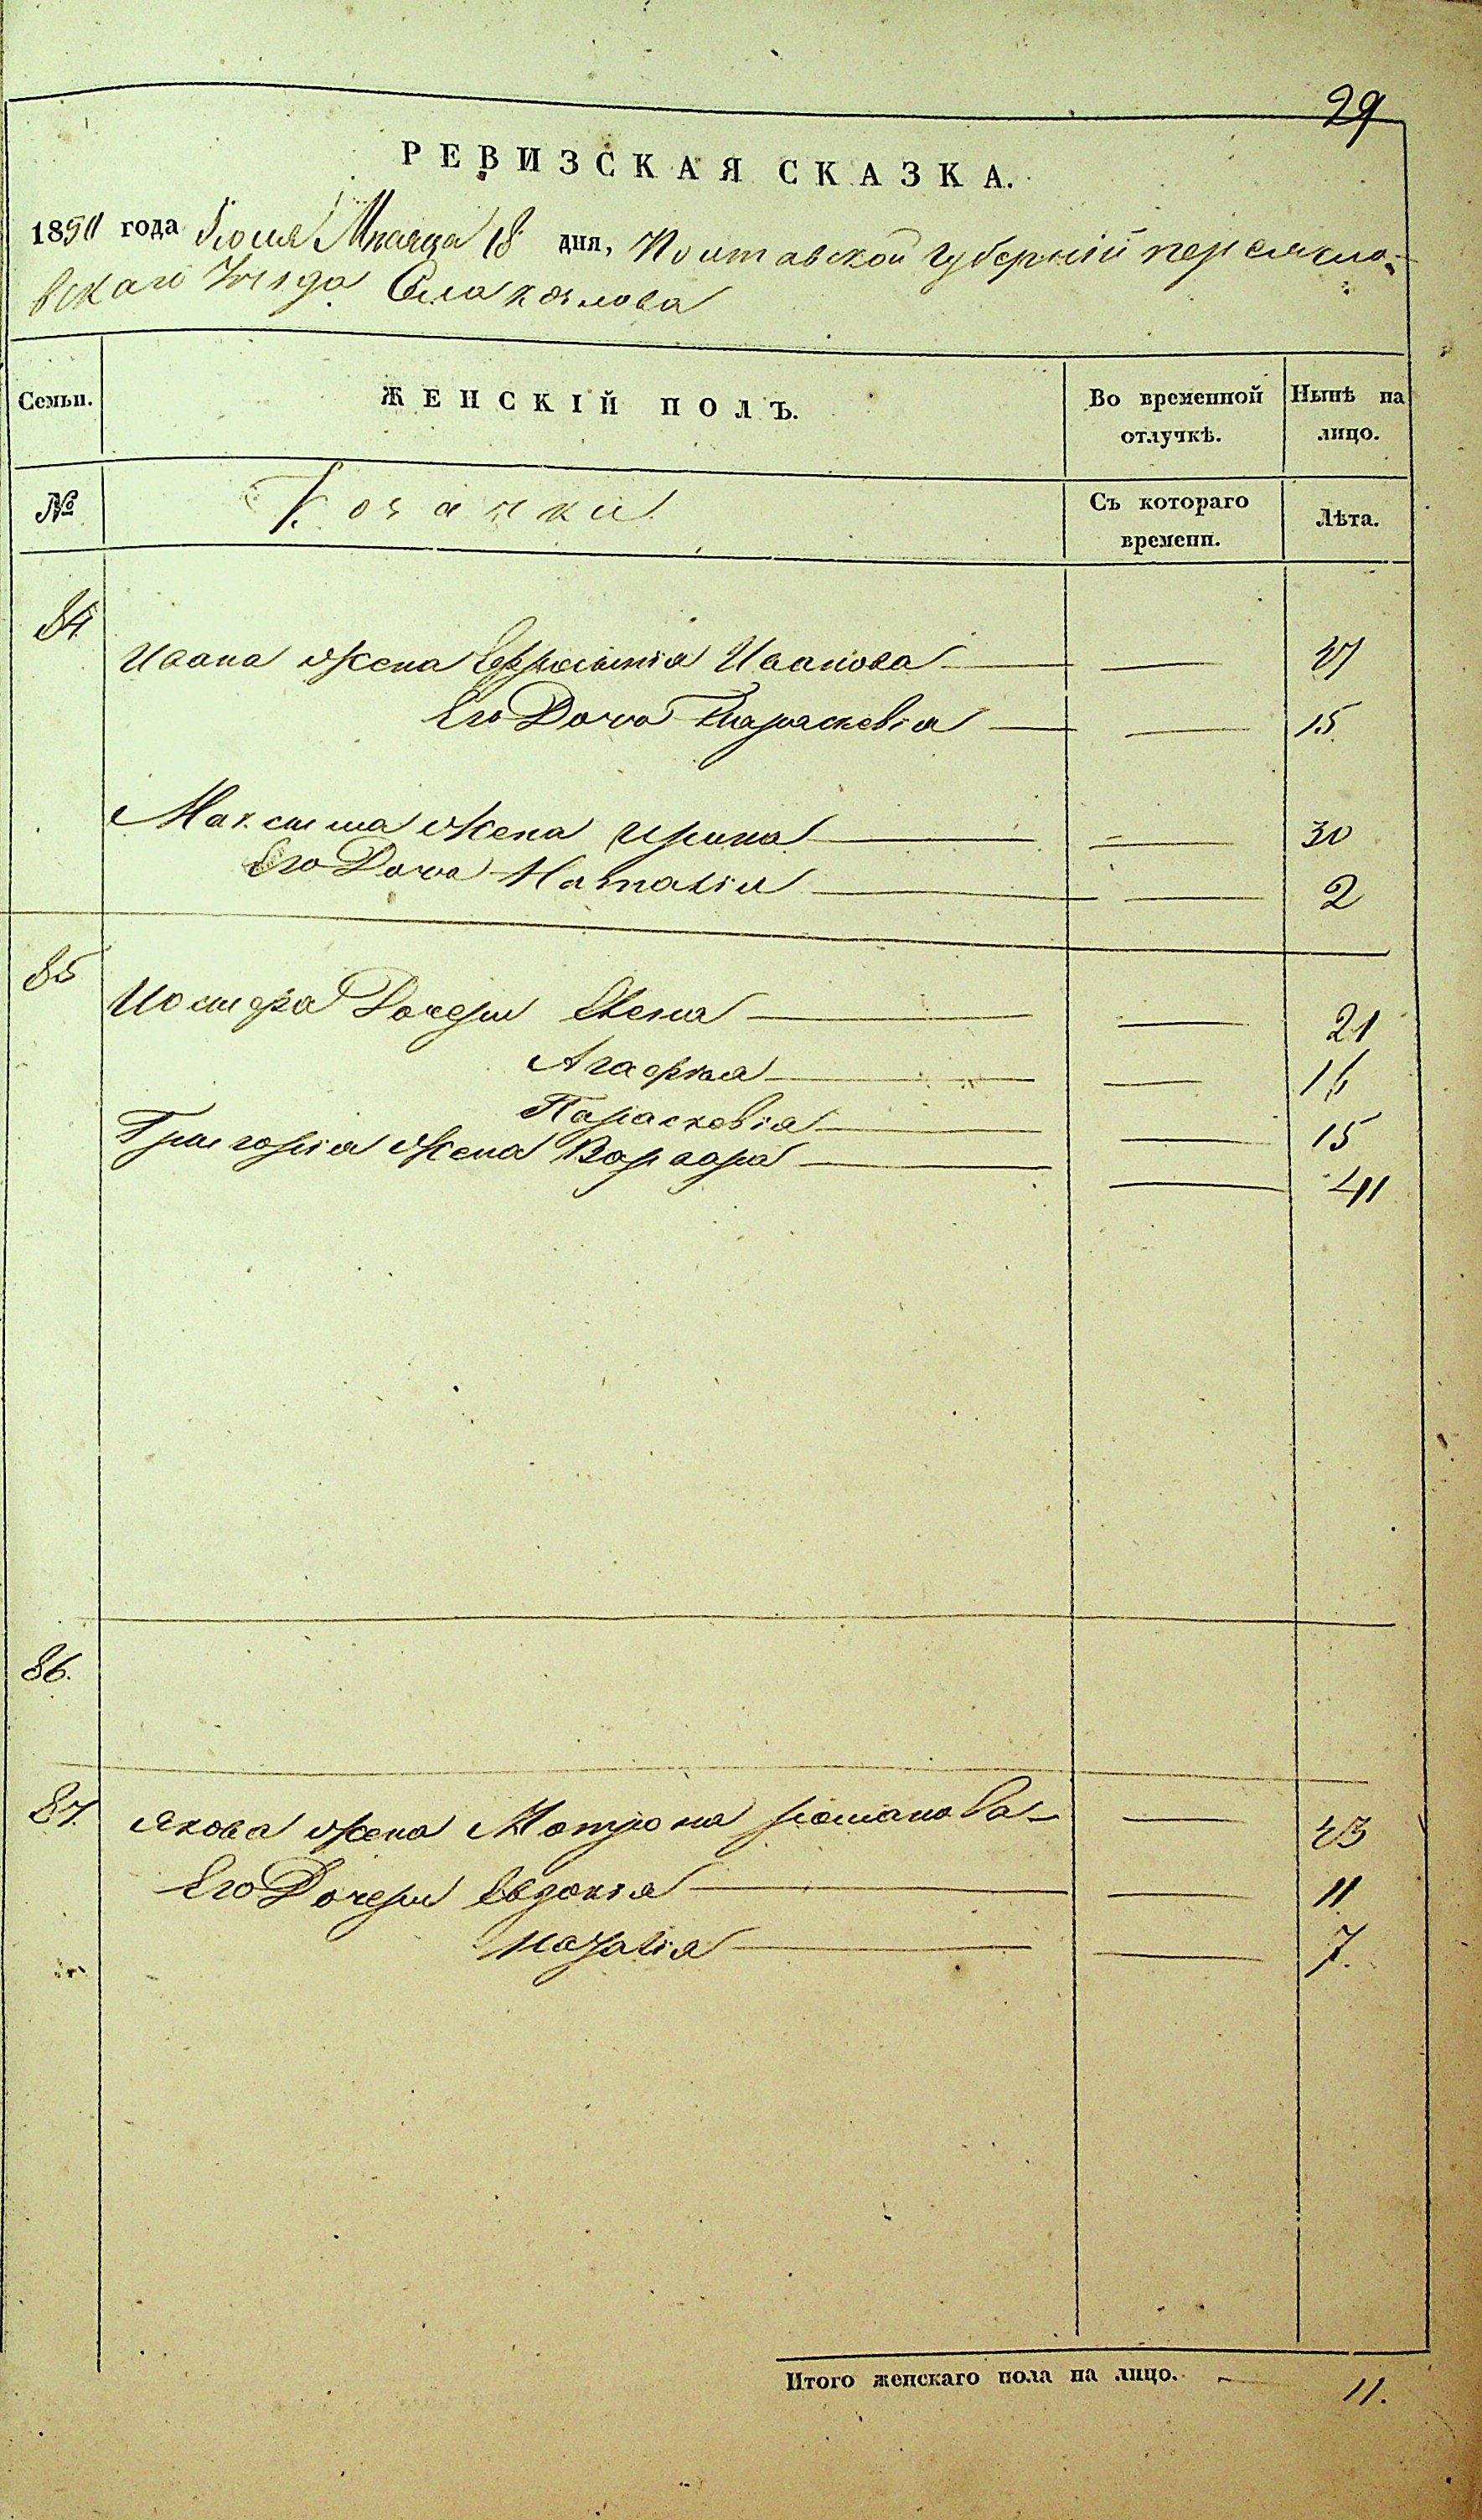 29
РЕВИЗСКАЯ СКАЗКА.
1850 года Июня Мѣсяца 18 дня, Полтавской губерніи переясло-
вскаго Уѣзда Села козлова
Семьи. ЖЕНСКІЙ ПОЛЪ. Во временной отлучкѣ. Нынѣ на лицо.
№ Козачки Съ котораго времени. Лѣта.
84.
Ивана жена Ефросинія Иванова
Его Дочь Параскевія 15
Максима жена ирина 30
Его Дочь Наталія 2
85
Іосифа Дочери Елена 21
Агафия 16
Парасковія 15
Григорія жена Варвара 41
86.
87. якова жена Мотрона романова 43
Его Дочери Евдокія 11
Наталія 7.
Итого женскаго пола на лицо. 11.